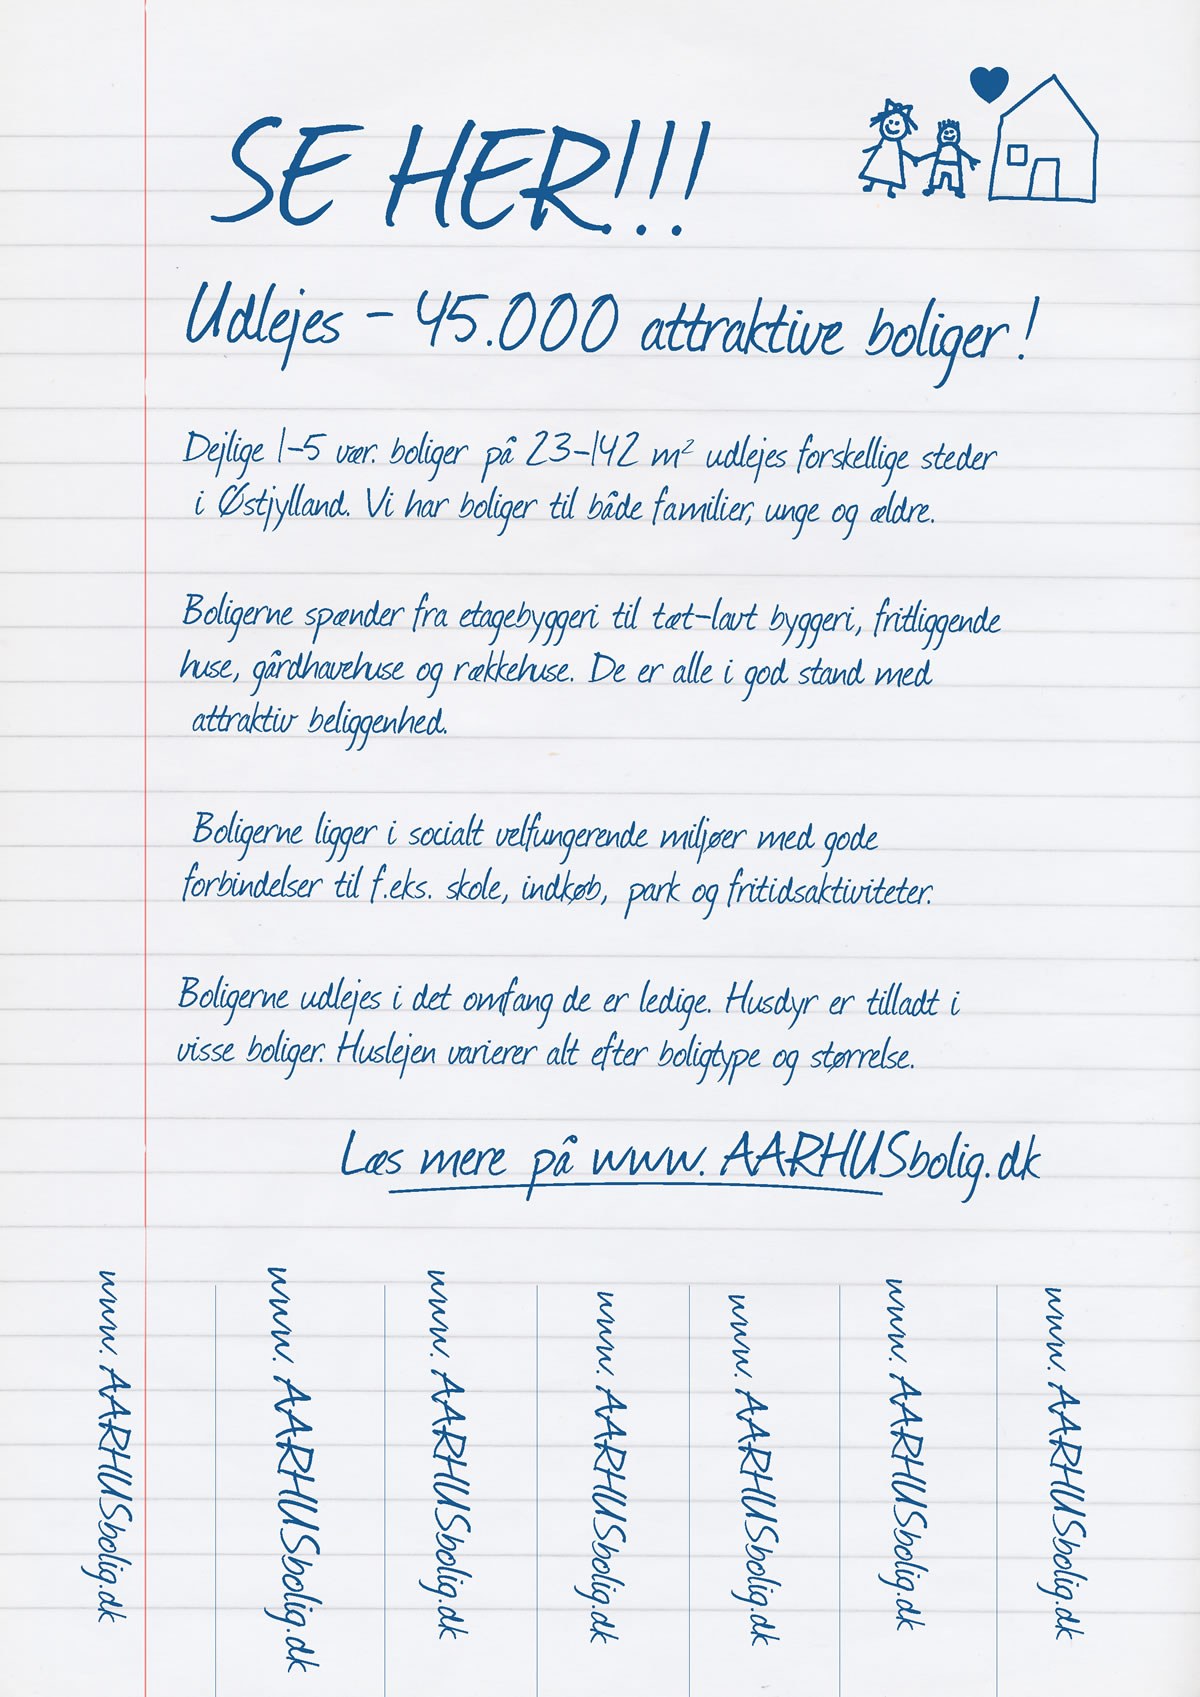 SE HER!!!
Udlejes - 45.000 attraktive boliger!
Dejlige 1-5 vær. boliger på 23-142 m² udlejes forskellige steder
i Østjylland. Vi har boliger til både familier, unge og ældre.
Boligerne spænder fra etagebyggeri til tæt-lavt byggeri, fritliggende
huse, gårdhavehuse og rækkehuse. De er alle i god stand med
attraktiv beliggenhed.
Boligerne ligger i socialt velfungerende miljøer med gode
forbindelser til f.eks. skole, indkøb, park og fritidsaktiviteter.
Boligerne udlejes i det omfang de er ledige. Husdyr er tilladt i
visse boliger. Huslejen varierer alt efter boligtype og størrelse.
Læs mere på www.AARHUSbolig.dk
www.AARHUSbolig.dk
www.AARHUSbolig.dk
www.AARHUSbolig.dk
www.AARHUSbolig.dk
www.AARHUSbolig.dk
www.AARHUSbolig.dk
www.AARHUSbolig.dk